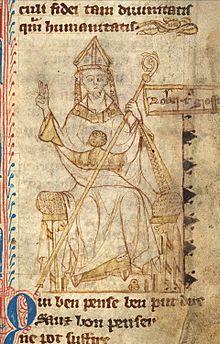 culi fidei tam diuinitatis
qui humanitatis.
Robert' g
Qui ben pense ben put dire
Sanz bon penser
ne pot suffire